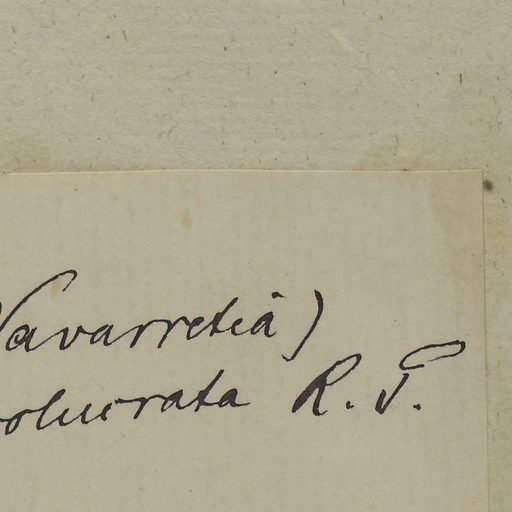 Navarretia)
volucrata R. T.